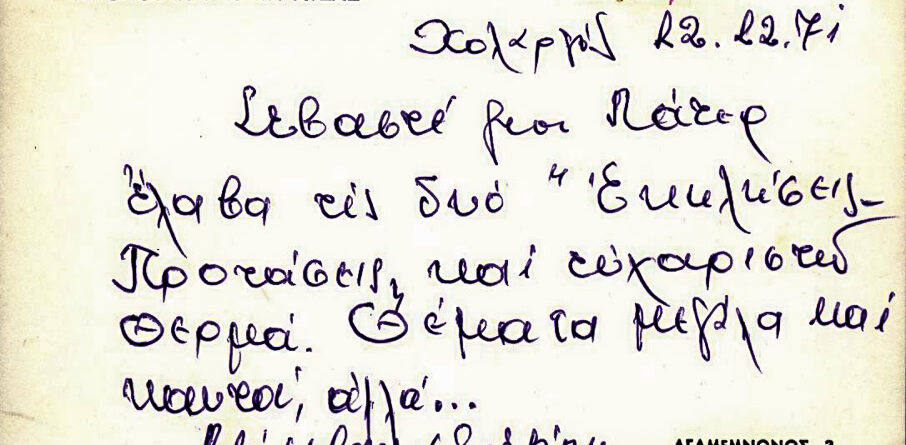 Χολαργός 22.12.71
Σεβαστέ μου Πάτερ
Ἔλαβα τίς δυό "Ἐκκλήσεις-
Προτάσεις" καί εὐχαριστῶ
θερμά. Θέματα μεγάλα καί
καυτά, ἀλλά...
ΑΓΑΜΕΜΝΟΝΟΣ 3